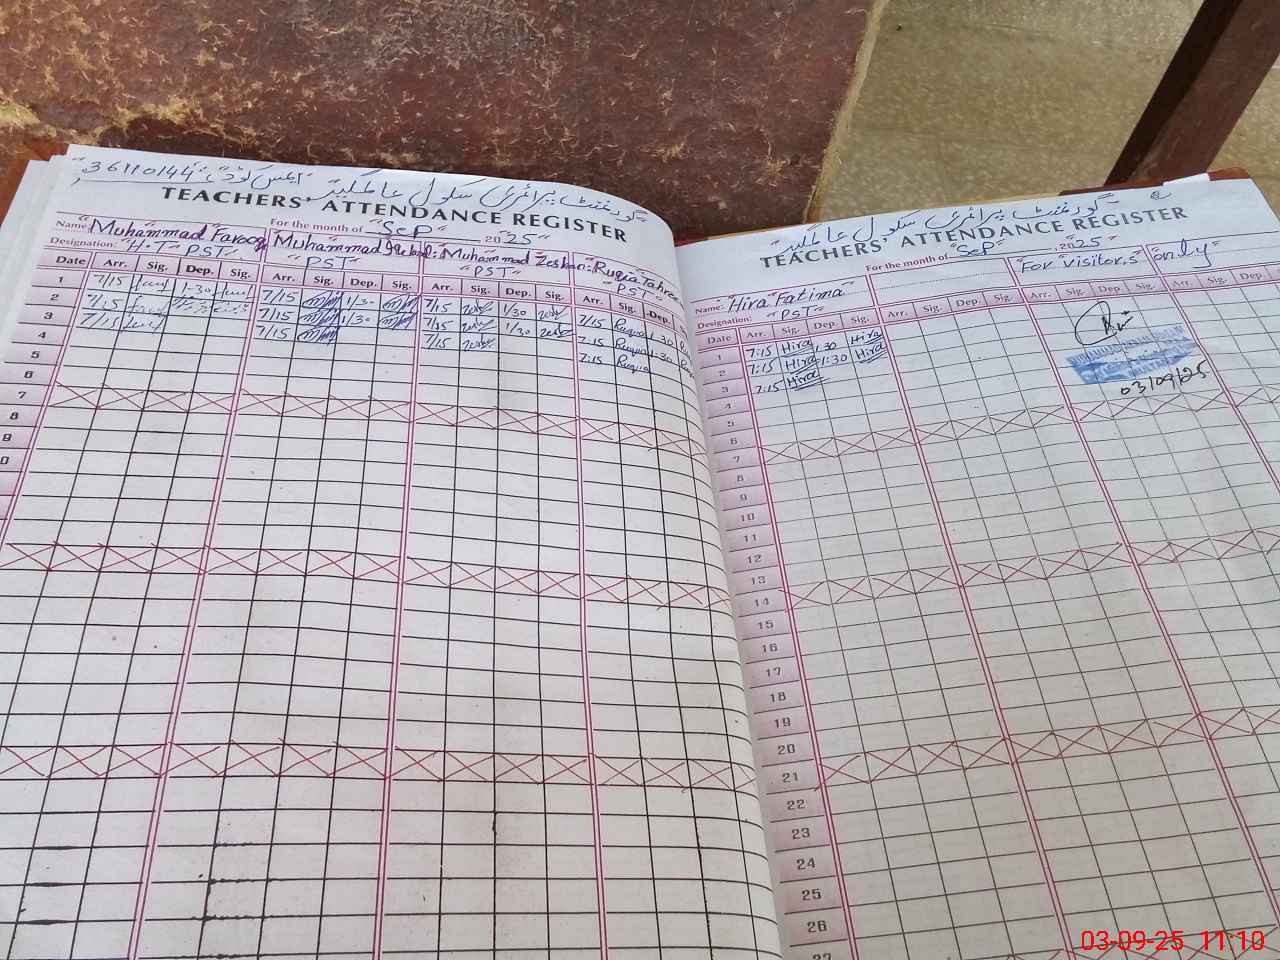 "گورنمنٹ پرائمری سکول عالمگیر" ایمس کوڈ "36110144"
TEACHERS' ATTENDANCE REGISTER
For the month of "Sep" 2025"
Name: "Muhammad Farooq" "Muhammad Iqbal" "Muhammad Zeshan" "Ruqia Tahree
Designation: "H.T" PST" "PST" "PST" "PST"
Date Arr. Sig. Dep. Sig. Arr. Sig. Dep. Sig. Arr. Sig. Dep. Sig. Arr. Sig. Dep.
1 7/15 1-30 7/15 1/30 7/15 1/30 7/15 Ruqia 1-30
2 7/15 7/15 1/30 7/15 1/30 7:15 Ruqia 1:30
3 7/15 7/15 7/15 7:15 Ruqia
4
5
6
7
8
9
"گورنمنٹ پرائمری سکول عالمگیر"
TEACHERS' ATTENDANCE REGISTER
For the month of "Sep" 2025
Name: "Hira Fatima" "For visitor,s" "only"
Designation: "PST"
Date Arr. Sig. Dep. Sig. Arr. Sig. Dep. Sig. Arr. Sig. Dep. Sig. Arr. Sig. Dep.
1 7:15 Hira 1:30 Hira
2 7:15 Hira 1:30 Hira
3 7:15 Hira
03/09/25
4
5
6
7
8
9
10
11
12
13
14
15
16
17
18
19
20
21
22
23
24
25
26
27
03-09-25 11:10